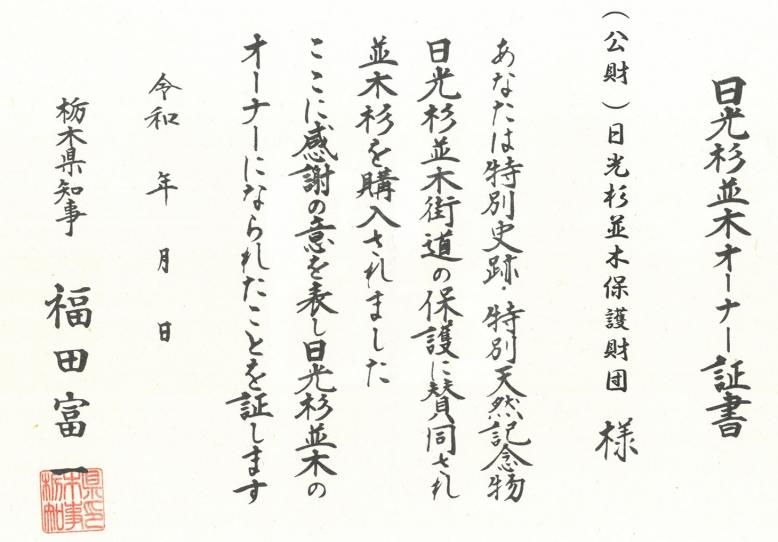 日光杉並木オーナー証書
（公財）日光杉並木保護財団 様
あなたは特別史跡・特別天然記念物
日光杉並木街道の保護に賛同され
並木杉を購入されました
ここに感謝の意を表し日光杉並木の
オーナーになられたことを証します
令和 年 月 日
栃木県知事 福田富一
栃木県知事之印